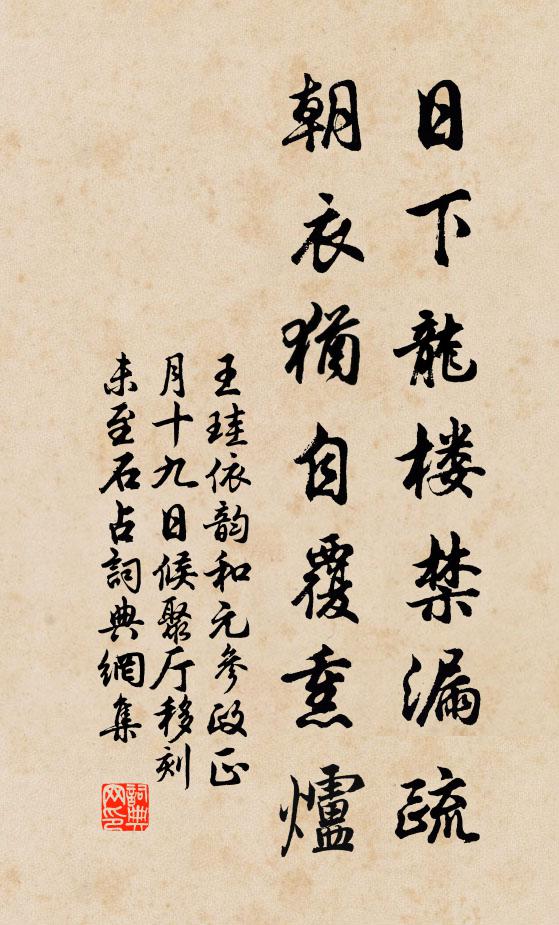 日下龍楼禁漏疏
朝衣猶自覆熏爐
王珪依韵和元參政正
月十九日候聚厅移刻
未至石占詞典網集
詞典网印